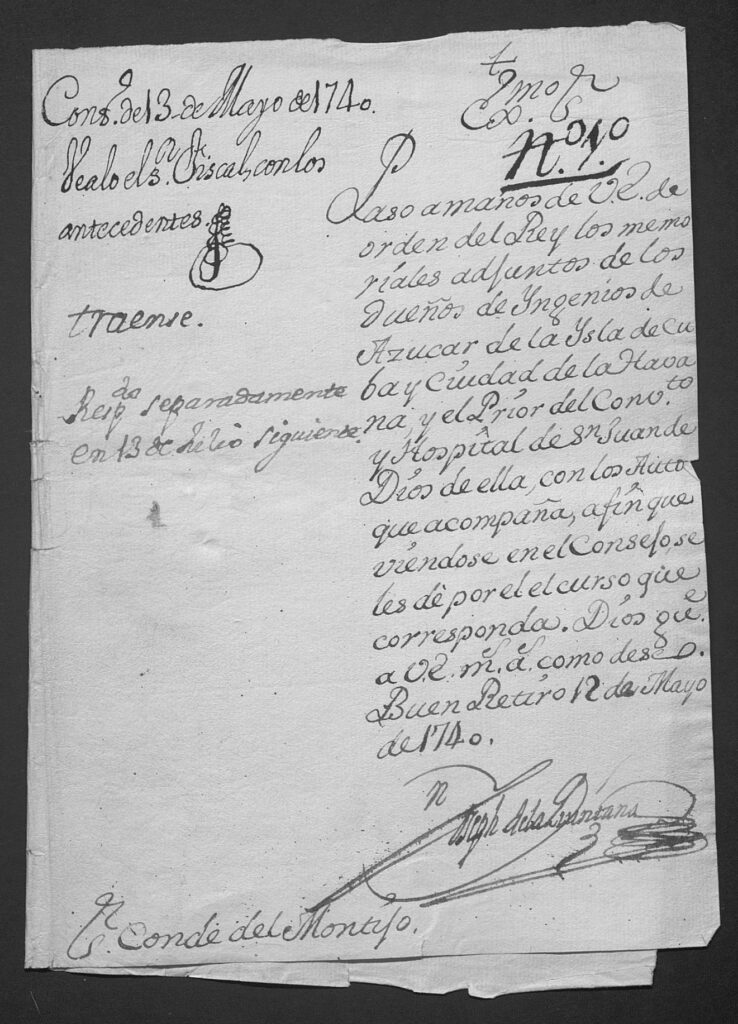 Cons.º de 13 de Mayo de 1740.
Vealo el S.r Fiscal, con los
antecedentes.
traense.
Resp.da separadamente
en 13 de Julio siguiente.
†
Ex.mo S.r
N.º 1.º
Paso a manos de V.E. de
orden del Rey los memo
riales adjuntos de los
Dueños de Yngenios de
Azucar de la Ysla de Cu
ba y Ciudad de la Hava
na, y el Prior del Conv.to
y Hospital de S.n Juan de
Dios de ella, con los Auto
que acompaña, a fin que
viendose en el Consejo, se
les dè por el el curso que
corresponda. Dios gue.
a V.E. m.s a.s como deseo.
Buen Retiro 12 de Mayo
de 1740.
Joseph de la Quintana
S.r Conde del Montijo.